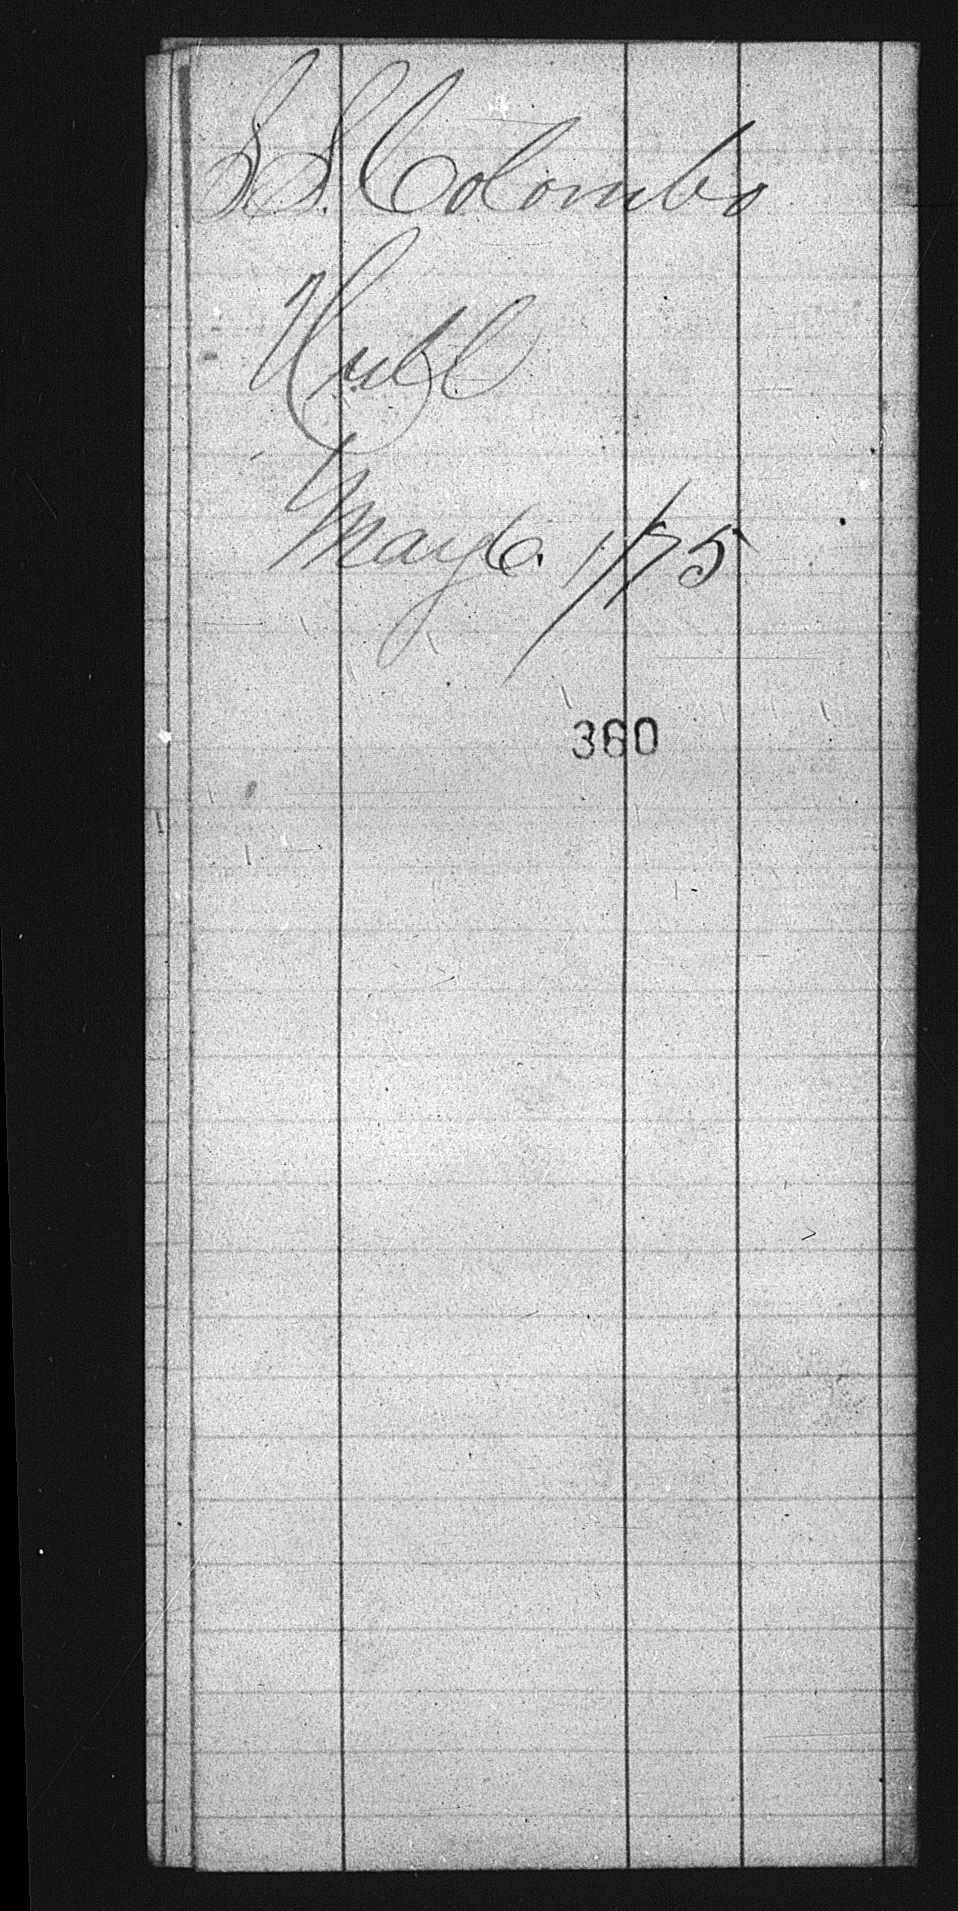 S.S. Colombo
Hull
May 6. 1/75
360